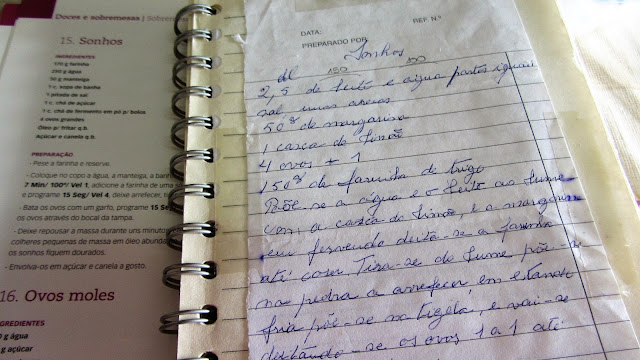 Doces e sobremesas | Sobre
15. Sonhos
INGREDIENTES
170 g farinha
250 g água
50 g manteiga
1 c. sopa de banha
1 pitada de sal
1 c. chá de açúcar
1 c. chá de fermento em pó p/ bolos
4 ovos grandes
Óleo p/ fritar q.b.
Açúcar e canela q.b.
PREPARAÇÃO
- Pese a farinha e reserve.
- Coloque no copo a água, a manteiga, a banh
7 Min/ 100º/ Vel 1, adicione a farinha de uma s
e programe 15 Seg/ Vel 4, deixe arrefecer,
- Bata os ovos com um garfo, programe 15 Se
os ovos através do bocal da tampa.
- Deixe repousar a massa durante uns minutos
colheres pequenas de massa em óleo abunda
os sonhos fiquem dourados.
- Envolva-os em açúcar e canela a gosto.
16. Ovos moles
INGREDIENTES
0 g água
g açúcar
DATA:
REF. N.º
PREPARADO POR:
Sonhos
dl
2,5 de leite e agua partes iguais
sal umas areias
50g de margarina
1 casca de limão
4 ovos + 1
150g de farinha de trigo
Põe-se a agua e o leite ao lume
com a casca do limão, e a margarina
em fervendo deita-se a farinha
até cozer Tira-se do lume põe-se
na pedra a arrefecer em estando
fria põe-se na tigela, e vai-se
deitando-se os ovos 1 a 1 até